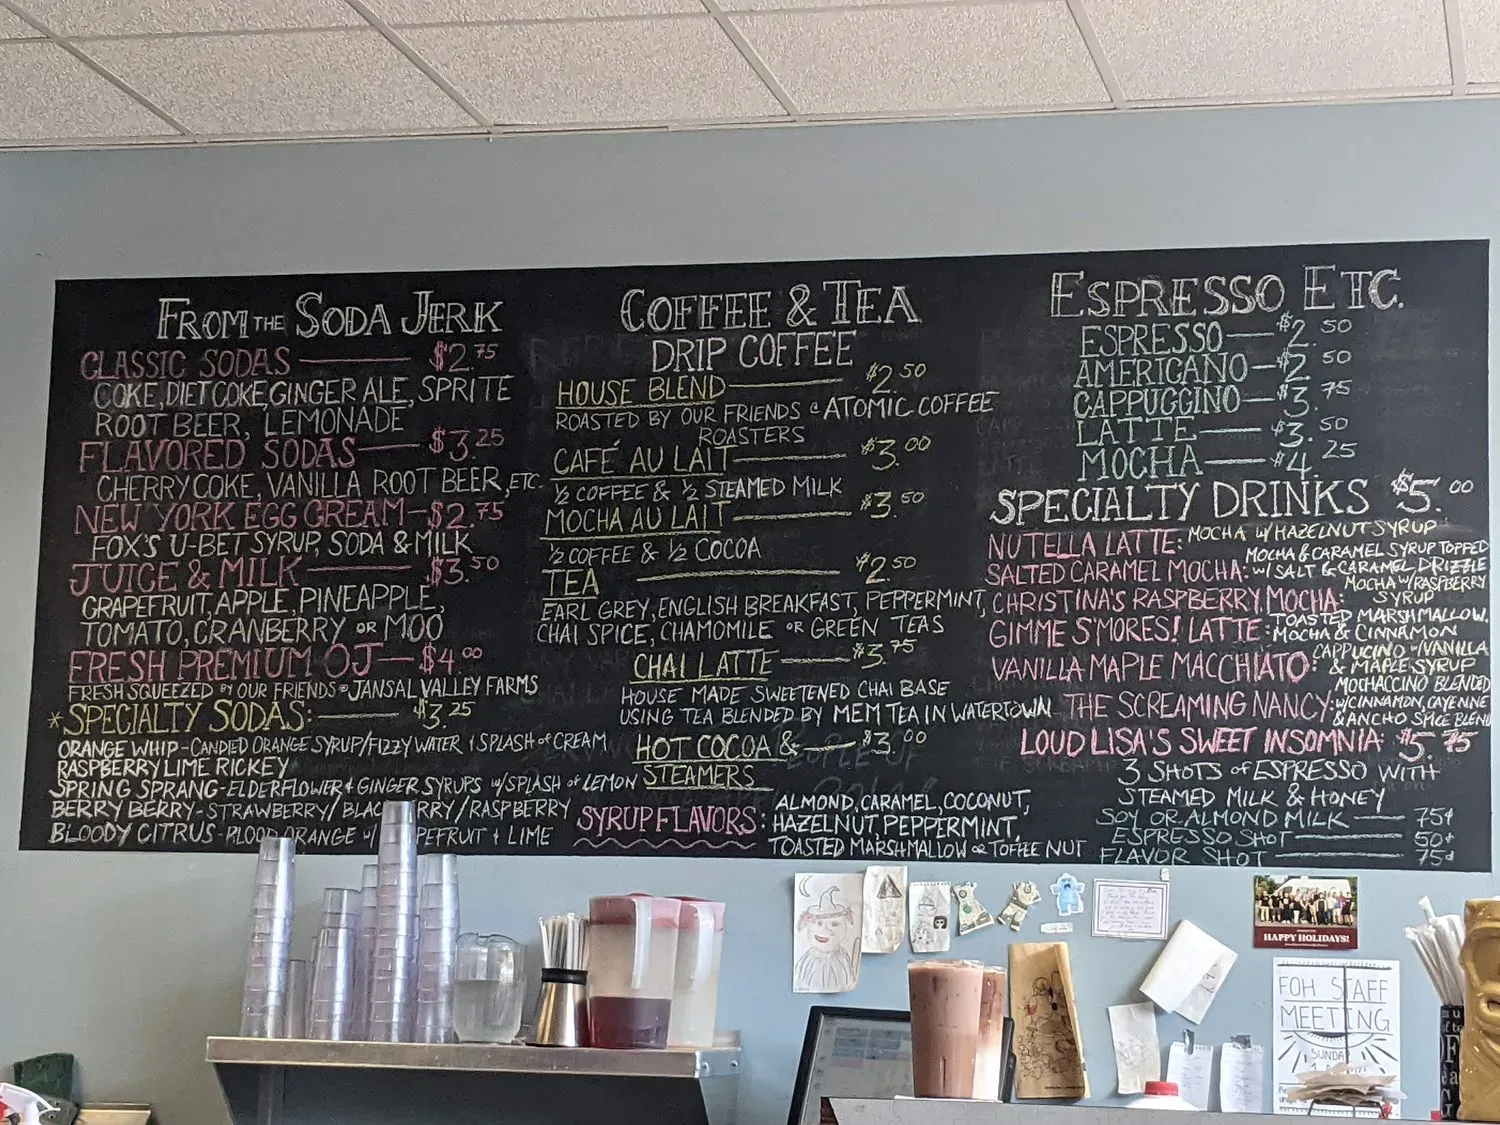 FROM THE SODA JERK
CLASSIC SODAS $2.75
COKE, DIET COKE, GINGER ALE, SPRITE
ROOT BEER, LEMONADE
FLAVORED SODAS $3.25
CHERRY COKE, VANILLA ROOT BEER, ETC.
NEW YORK EGG CREAM $2.75
FOX'S U-BET SYRUP, SODA & MILK
JUICE & MILK $3.50
GRAPEFRUIT, APPLE, PINEAPPLE,
TOMATO, CRANBERRY OR MOO
FRESH PREMIUM OJ $4.00
FRESH SQUEEZED BY OUR FRIENDS @ JANSAL VALLEY FARMS
*SPECIALTY SODAS: $3.25
ORANGE WHIP - CANDIED ORANGE SYRUP/FIZZY WATER & SPLASH OF CREAM
RASPBERRY LIME RICKEY
SPRING SPRANG - ELDERFLOWER & GINGER SYRUPS W/SPLASH OF LEMON
BERRY BERRY - STRAWBERRY/BLAC ERRY/RASPBERRY
BLOODY CITRUS - BLOOD ORANGE W/ PEFRUIT & LIME
COFFEE & TEA
DRIP COFFEE
HOUSE BLEND $2.50
ROASTED BY OUR FRIENDS @ ATOMIC COFFEE
ROASTERS
CAFÉ AU LAIT $3.00
½ COFFEE & ½ STEAMED MILK
MOCHA AU LAIT $3.50
½ COFFEE & ½ COCOA
TEA $2.50
EARL GREY, ENGLISH BREAKFAST, PEPPERMINT,
CHAI SPICE, CHAMOMILE OR GREEN TEAS
CHAI LATTE $3.75
HOUSE MADE SWEETENED CHAI BASE
USING TEA BLENDED BY MEM TEA IN WATERTOWN
HOT COCOA & $3.00
STEAMERS
SYRUP FLAVORS: ALMOND, CARAMEL, COCONUT,
HAZELNUT, PEPPERMINT,
TOASTED MARSHMALLOW OR TOFFEE NUT
ESPRESSO ETC.
ESPRESSO $2.50
AMERICANO $2.50
CAPPUGGINO $3.75
LATTE $3.50
MOCHA $4.25
SPECIALTY DRINKS $5.00
NUTELLA LATTE: MOCHA W/HAZELNUT SYRUP
SALTED CARAMEL MOCHA: MOCHA & CARAMEL SYRUP TOPPED
W/SALT & CARAMEL DRIZZLE
CHRISTINA'S RASPBERRY MOCHA: MOCHA W/RASPBERRY
SYRUP
GIMME S'MORES! LATTE: TOASTED MARSHMALLOW,
MOCHA & CINNAMON
VANILLA MAPLE MACCHIATO: CAPPUCINO W/VANILLA
& MAPLE SYRUP
THE SCREAMING NANCY: MOCHACCINO BLENDED
W/CINNAMON, CAYENNE
& ANCHO SPICE BLEND
LOUD LISA'S SWEET INSOMNIA: $5.75
3 SHOTS OF ESPRESSO WITH
STEAMED MILK & HONEY
SOY OR ALMOND MILK 75¢
ESPRESSO SHOT 50¢
FLAVOR SHOT 75¢
HAPPY HOLIDAYS!
FOH STAFF
MEETING
SUNDAY